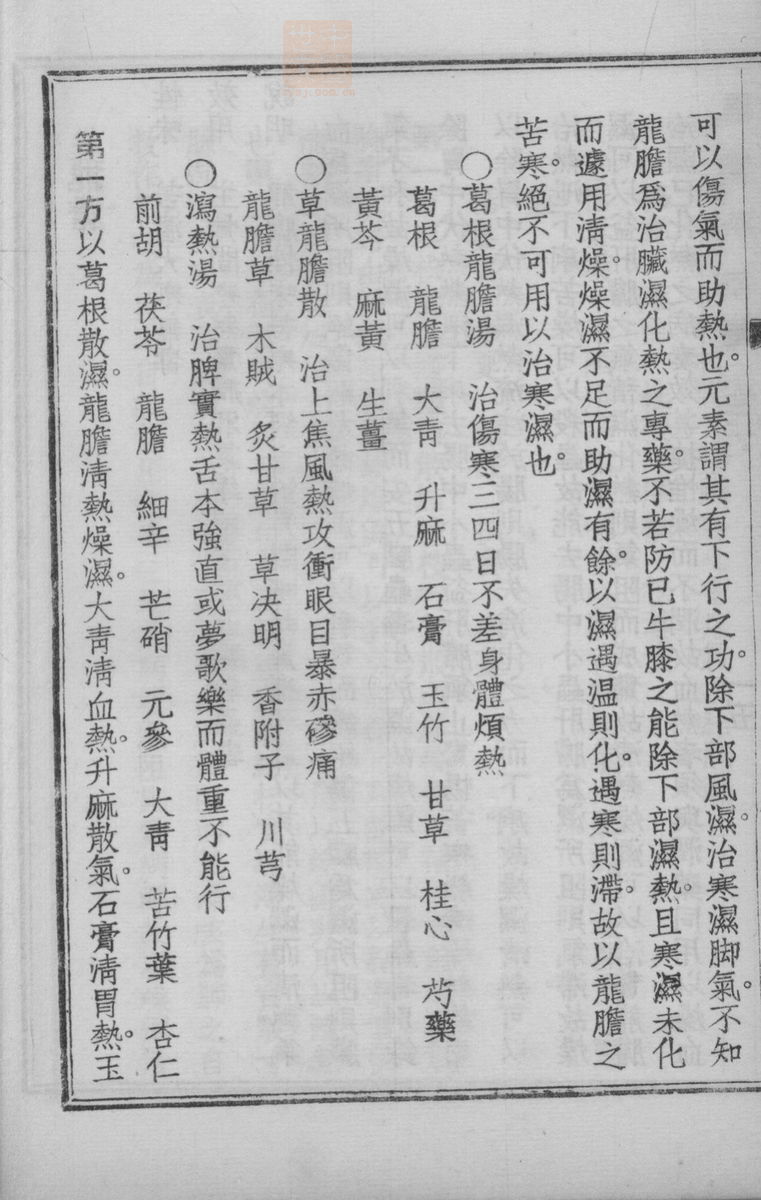 可以傷氣而助熱也。元素謂其有下行之功。除下部風濕。治寒濕脚氣。不知
龍膽爲治臟濕化熱之專藥。不若防已牛膝之能除下部濕熱。且寒濕未化
而遽用清燥。燥濕不足而助濕有餘。以濕遇温則化。遇寒則滯。故以龍膽之
苦寒。絕不可用以治寒濕也。
○葛根龍膽湯　治傷寒三四日不差身體煩熱
葛根　龍膽　大靑　升麻　石膏　玉竹　甘草　桂心　芍藥
黃芩　麻黃　生薑
○草龍膽散　治上焦風熱攻衝眼目暴赤磣痛
龍膽草　木賊　炙甘草　草决明　香附子　川芎
○瀉熱湯　治脾實熱舌本強直或夢歌樂而體重不能行
前胡　茯苓　龍膽　細辛　芒硝　元參　大靑　苦竹葉　杏仁
第一方以葛根散濕。龍膽淸熱燥濕。大靑淸血熱。升麻散氣。石膏淸胃熱。玉